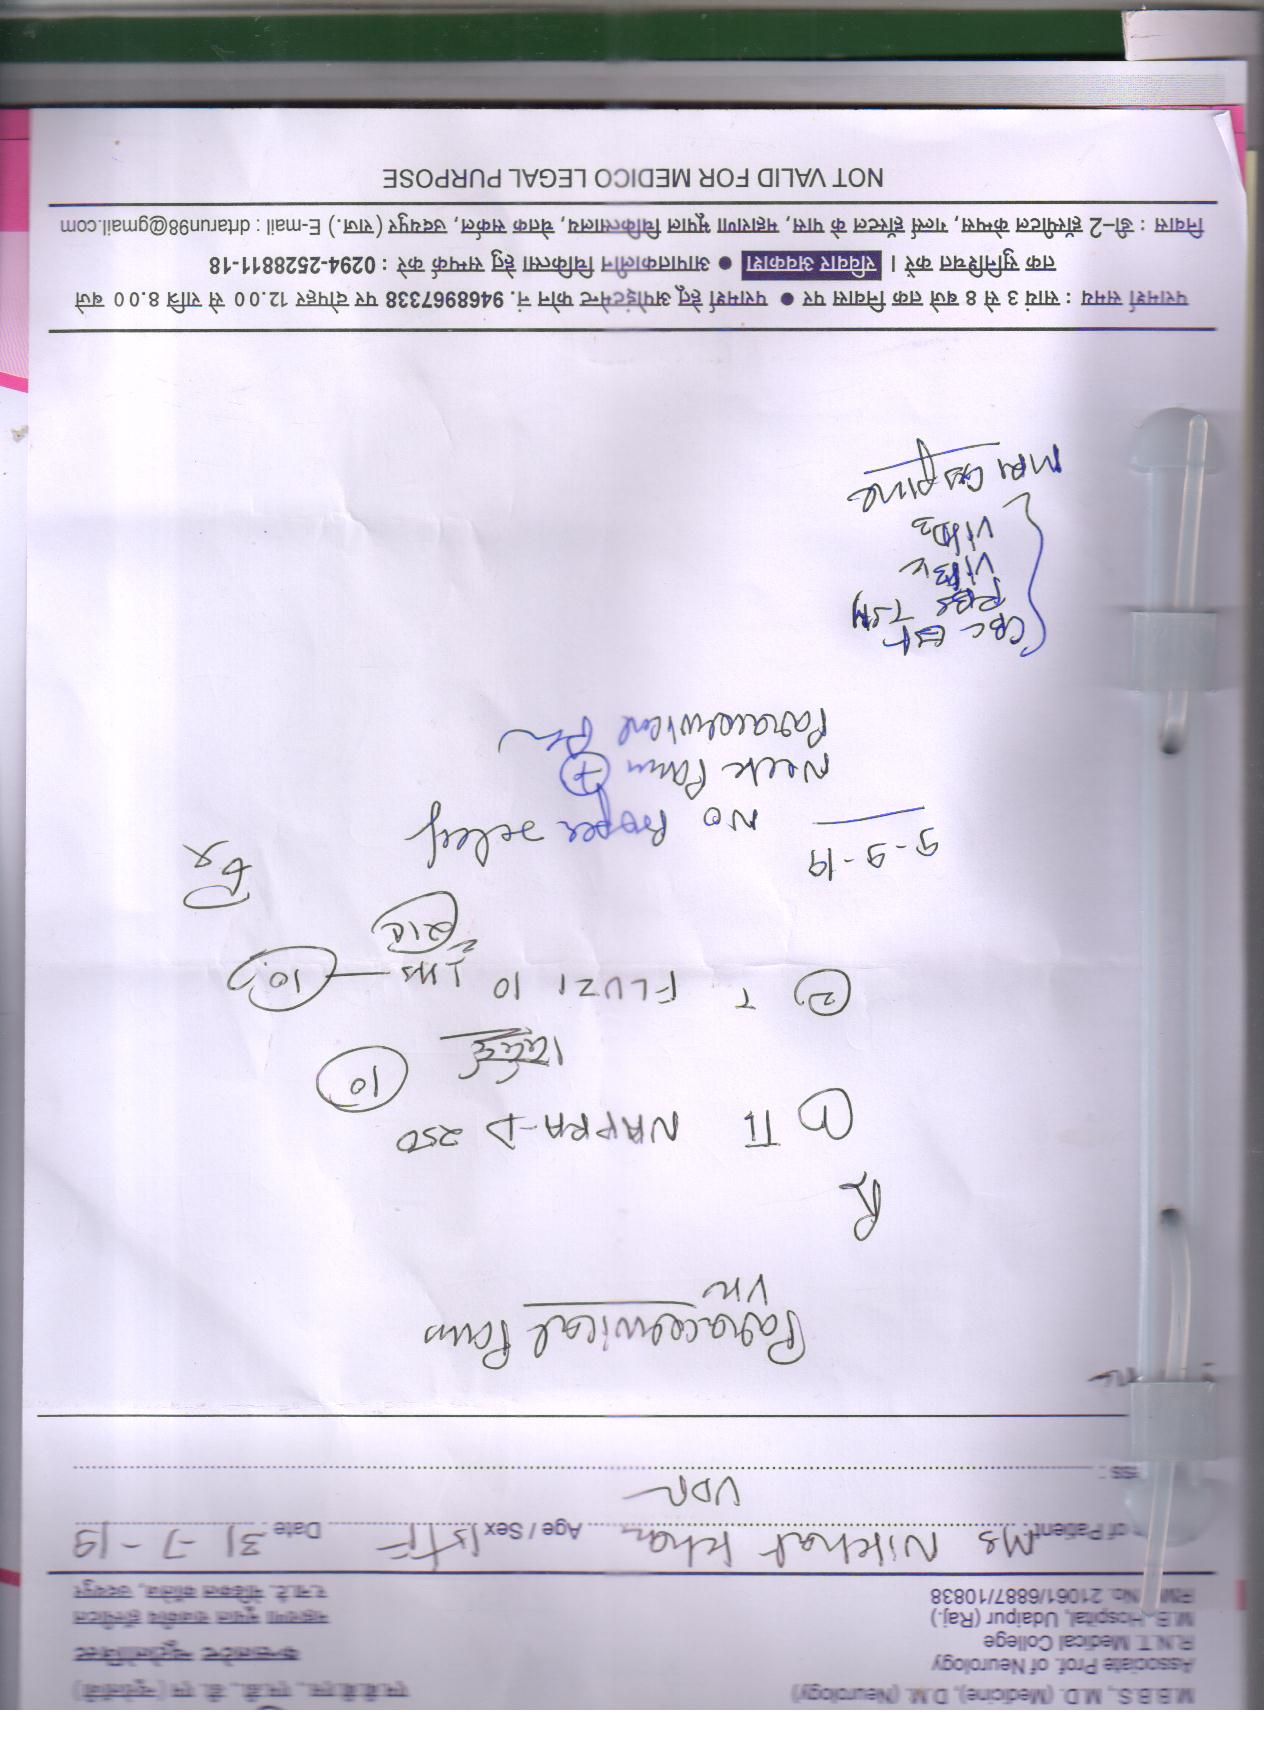 M.B.B.S., M.D. (Medicine), D.M. (Neurology)
Associate Prof. of Neurology
R.N.T. Medical College
M.B. Hospital, Udaipur (Raj.)
RMC No. 21061/6887/10838
एम.बी.बी.एस., एम.डी., डी. एम (न्यूरोलॉजी)
कन्सलटेन्ट न्यूरोलोजिस्ट
महाराणा भूपाल राजकीय हॉस्पीटल
र.ना.टे. मेडिकल कॉलेज, उदयपुर
of Patient: Ms Nikhat Khan Age / Sex 15/F Date : 31-7-19
ess : UDR
Paracervical Pain
R
① T NAPRA-D 250
10
② T FLUZI 10 1 HS — 10
9-9-19 NO Proper relief
Neck Pain +
Paracervical Pain
CBC
RBS TSH
Vit B12
Vit D3
MRI C Spine
परामर्श समय : सायं 3 से 8 बजे तक निवास पर ● परामर्श हेतु अपोईंटमेन्ट फोन नं. 9468967338 पर दोपहर 12.00 से रात्रि 8.00 बजे
तक सुनिश्चित करे । रविवार अवकाश ● आपातकालीन चिकित्सा हेतु सम्पर्क करे : 0294-2528811-18
निवास : डी-2 हॉस्पीटल केम्पस, गर्ल्स हॉस्टल के पास, महाराणा भूपाल चिकित्सालय, चेतक सर्कल, उदयपुर (राज.) E-mail : drtarun98@gmail.com
NOT VALID FOR MEDICO LEGAL PURPOSE